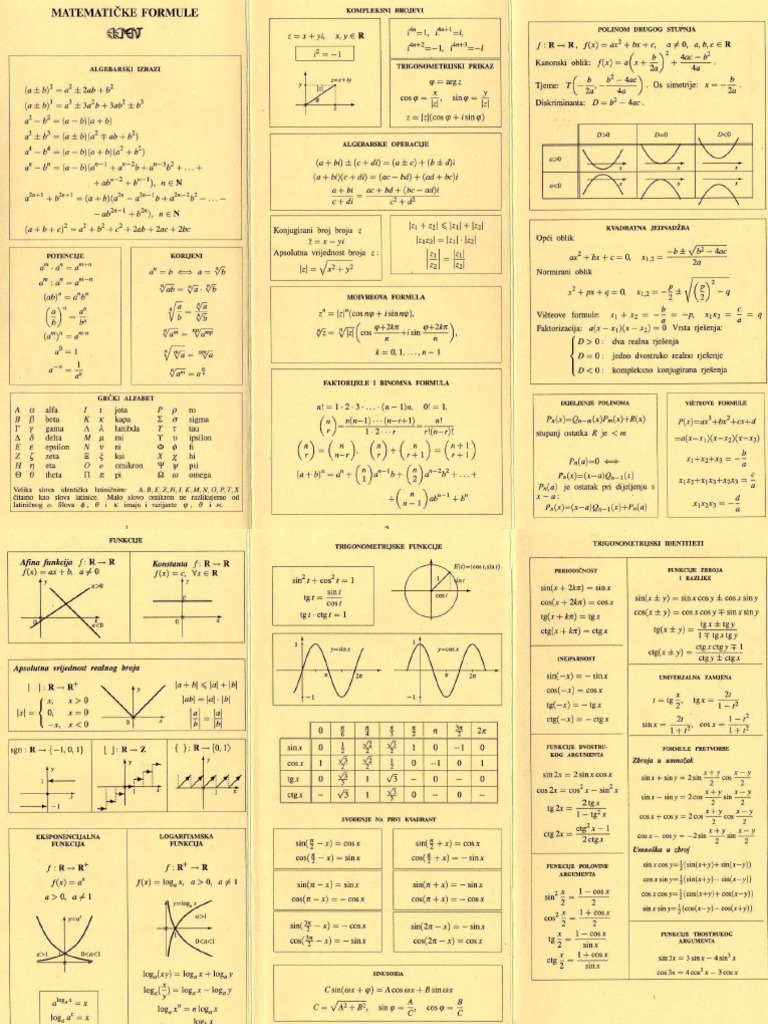 MATEMATIČKE FORMULE
ALGEBARSKI IZRAZI
(a ± b)² = a² ± 2ab + b²
(a ± b)³ = a³ ± 3a²b + 3ab² ± b³
a² − b² = (a − b)(a + b)
a³ ± b³ = (a ± b)(a² ∓ ab + b²)
a⁴ − b⁴ = (a − b)(a + b)(a² + b²)
aⁿ − bⁿ = (a − b)(aⁿ⁻¹ + aⁿ⁻²b + aⁿ⁻³b² + … +
+ abⁿ⁻² + bⁿ⁻¹), n ∈ N
a²ⁿ⁺¹ + b²ⁿ⁺¹ = (a + b)(a²ⁿ − a²ⁿ⁻¹b + a²ⁿ⁻²b² − … −
− ab²ⁿ⁻¹ + b²ⁿ), n ∈ N
(a + b + c)² = a² + b² + c² + 2ab + 2ac + 2bc
POTENCIJE
aᵐ · aⁿ = aᵐ⁺ⁿ
aᵐ : aⁿ = aᵐ⁻ⁿ
(ab)ⁿ = aⁿbⁿ
(a/b)ⁿ = aⁿ/bⁿ
(aᵐ)ⁿ = aᵐⁿ
a⁰ = 1
a⁻ⁿ = 1/aⁿ
KORIJENI
aⁿ = b ⟺ a = ⁿ√b
ⁿ√ab = ⁿ√a · ⁿ√b
ⁿ√(a/b) = ⁿ√a / ⁿ√b
GRČKI ALFABET
A α alfa I ι jota P ρ ro
B β beta K κ kapa Σ σ sigma
Γ γ gama Λ λ lambda T τ tau
Δ δ delta M μ mi Υ υ ipsilon
E ε epsilon N ν ni Φ φ fi
Z ζ zeta Ξ ξ ksi X χ hi
H η eta O o omikron Ψ ψ psi
Θ θ theta Π π pi Ω ω omega
Velika slova identička latiničnim: A, B, E, Z, H, I, K, M, N, O, P, T, X
čitamo kao slova latinice. Malo slovo omikron ne razlikujemo od
latiničnog o. Slova φ, θ i κ imaju i varijante
KOMPLEKSNI BROJEVI
z = x + yi, x, y ∈ R
i² = −1
z=x+iy
i⁴ⁿ=1, i⁴ⁿ⁺¹=i,
i⁴ⁿ⁺²=−1, i⁴ⁿ⁺³=−i
TRIGONOMETRIJSKI PRIKAZ
φ = arg z
cos φ = x/|z|, sin φ = y/|z|
z = |z|(cos φ + i sin φ)
ALGEBARSKE OPERACIJE
(a + bi) ± (c + di) = (a ± c) + (b ± d)i
(a + bi)(c + di) = (ac − bd) + (ad + bc)i
(a + bi)/(c + di) = (ac + bd + (bc − ad)i)/(c² + d²)
Konjugirani broj broja z
z̄ = x − yi
Apsolutna vrijednost broja z :
|z| = √(x² + y²)
|z₁ + z₂| ⩽ |z₁| + |z₂|
|z₁z₂| = |z₁| · |z₂|
|z₁/z₂| = |z₁|/|z₂|
MOIVREOVA FORMULA
zⁿ = |z|ⁿ(cos nφ + i sin nφ),
ⁿ√z = ⁿ√|z| (cos (φ+2kπ)/n + i sin (φ+2kπ)/n),
k = 0, 1, …, n − 1
FAKTORIJELE I BINOMNA FORMULA
n! = 1 · 2 · 3 · … · (n − 1)n, 0! = 1,
(n r) = n(n−1)···(n−r+1)/(1 · 2 ··· r) = n!/(r!(n−r)!)
(n r) = (n n−r), (n r) + (n r+1) = (n+1 r+1)
(a + b)ⁿ = aⁿ + (n 1)aⁿ⁻¹b + (n 2)aⁿ⁻²b² + … +
+ (n n−1)abⁿ⁻¹ + bⁿ
POLINOM DRUGOG STUPNJA
f : R → R, f(x) = ax² + bx + c, a ≠ 0, a, b, c ∈ R
Kanonski oblik: f(x) = a(x + b/2a)² + (4ac − b²)/4a .
Tjeme: T(−b/2a, −(b² − 4ac)/4a). Os simetrije: x = −b/2a.
Diskriminanta: D = b² − 4ac.
D>0 D=0 D<0
a>0
a<0
KVADRATNA JEDNADŽBA
Opći oblik
ax² + bx + c = 0, x₁,₂ = (−b ± √(b² − 4ac))/2a
Normirani oblik
x² + px + q = 0, x₁,₂ = −p/2 ± √((p/2)² − q)
Vièteove formule: x₁ + x₂ = −b/a = −p, x₁x₂ = c/a = q
Faktorizacija: a(x − x₁)(x − x₂) = 0 Vrsta rješenja:
D > 0 : dva realna rješenja
D = 0 : jedno dvostruko realno rješenje
D < 0 : kompleksno konjugirana rješenja
DIJELJENJE POLINOMA
Pₙ(x)=Qₙ₋ₘ(x)Pₘ(x)+R(x)
stupanj ostatka R je < m
Pₙ(a)=0 ⟺
Pₙ(x)=(x−a)Qₙ₋₁(x)
Pₙ(a) je ostatak pri dijeljenju s
x − a :
Pₙ(x)=(x−a)Qₙ₋₁(x)+Pₙ(a)
VIÈTEOVE FORMULE
P(x)=ax³+bx²+cx+d
=a(x−x₁)(x−x₂)(x−x₃)
x₁+x₂+x₃ = −b/a
x₁x₂+x₁x₃+x₂x₃ = c/a
x₁x₂x₃ = −d/a
FUNKCIJE
Afina funkcija f : R → R
f(x) = ax + b, a ≠ 0
a>0
a<0
Konstanta f : R → R
f(x) = c, ∀x ∈ R
Apsolutna vrijednost realnog broja
| | : R → R⁺
|x| = { x, x > 0
0, x = 0
−x, x < 0
|a + b| ⩽ |a| + |b|
|ab| = |a| · |b|
|a/b| = |a|/|b|
sgn : R → {−1, 0, 1}
⌊ ⌋ : R → Z
{ } : R → [0, 1)
EKSPONENCIJALNA
FUNKCIJA
f : R → R⁺
f(x) = aˣ
a > 0, a ≠ 1
y=aˣ
a>1 0<a<1
a^(logₐ x) = x
logₐ aˣ = x
LOGARITAMSKA
FUNKCIJA
f : R⁺ → R
f(x) = logₐ x, a > 0, a ≠ 1
y=logₐ x
a>1
0<a<1
logₐ(xy) = logₐ x + logₐ y
logₐ(x/y) = logₐ x − logₐ y
logₐ xⁿ = n logₐ x
TRIGONOMETRIJSKE FUNKCIJE
sin² t + cos² t = 1
tg t = sin t/cos t
tg t · ctg t = 1
E(t)=(cos t, sin t)
sin t
cos t
y=sin x
y=cos x
0 π/6 π/4 π/3 π/2 π 3π/2 2π
sin x 0 1/2 √2/2 √3/2 1 0 −1 0
cos x 1 √3/2 √2/2 1/2 0 −1 0 1
tg x 0 √3/3 1 √3 − 0 − 0
ctg x − √3 1 √3/3 0 − 0 −
SVOĐENJE NA PRVI KVADRANT
sin(π/2 − x) = cos x
cos(π/2 − x) = sin x
sin(π/2 + x) = cos x
cos(π/2 + x) = − sin x
sin(π − x) = sin x
cos(π − x) = − cos x
sin(π + x) = − sin x
cos(π + x) = − cos x
sin(3π/2 − x) = − cos x
cos(3π/2 − x) = − sin x
sin(2π − x) = − sin x
cos(2π − x) = cos x
SINUSOIDA
C sin(ωx + φ) = A cos ωx + B sin ωx
C = √(A² + B²), sin φ = A/C, cos φ = B/C
TRIGONOMETRIJSKI IDENTITETI
PERIODIČNOST
sin(x + 2kπ) = sin x
cos(x + 2kπ) = cos x
tg(x + kπ) = tg x
ctg(x + kπ) = ctg x
(NE)PARNOST
sin(−x) = − sin x
cos(−x) = cos x
tg(−x) = − tg x
ctg(−x) = − ctg x
FUNKCIJE DVOSTRU-
KOG ARGUMENTA
sin 2x = 2 sin x cos x
cos 2x = cos² x − sin² x
tg 2x = 2 tg x/(1 − tg² x)
ctg 2x = (ctg² x − 1)/(2 ctg x)
FUNKCIJE POLOVINE
ARGUMENTA
sin² x/2 = (1 − cos x)/2
cos² x/2 = (1 + cos x)/2
tg x/2 = (1 − cos x)/sin x
ctg x/2 = (1 + cos x)/sin x
FUNKCIJE ZBROJA
I RAZLIKE
sin(x ± y) = sin x cos y ± cos x sin y
cos(x ± y) = cos x cos y ∓ sin x sin y
tg(x ± y) = (tg x ± tg y)/(1 ∓ tg x tg y)
ctg(x ± y) = (ctg x ctg y ∓ 1)/(ctg y ± ctg x)
UNIVERZALNA ZAMJENA
t = tg x/2, tg x = 2t/(1 − t²)
sin x = 2t/(1 + t²), cos x = (1 − t²)/(1 + t²)
FORMULE PRETVORBE
Zbroja u umnožak
sin x + sin y = 2 sin (x+y)/2 cos (x−y)/2
sin x − sin y = 2 cos (x+y)/2 sin (x−y)/2
cos x + cos y = 2 cos (x+y)/2 cos (x−y)/2
cos x − cos y = −2 sin (x+y)/2 sin (x−y)/2
Umnoška u zbroj
sin x cos y=½(sin(x+y)+ sin(x−y))
cos x sin y=½(sin(x+y)− sin(x−y))
cos x cos y=½(cos(x+y)+ cos(x−y))
sin x sin y=½(cos(x−y)− cos(x+y))
FUNKCIJE TROSTRUKOG
ARGUMENTA
sin 3x = 3 sin x − 4 sin³ x
cos 3x = 4 cos³ x − 3 cos x